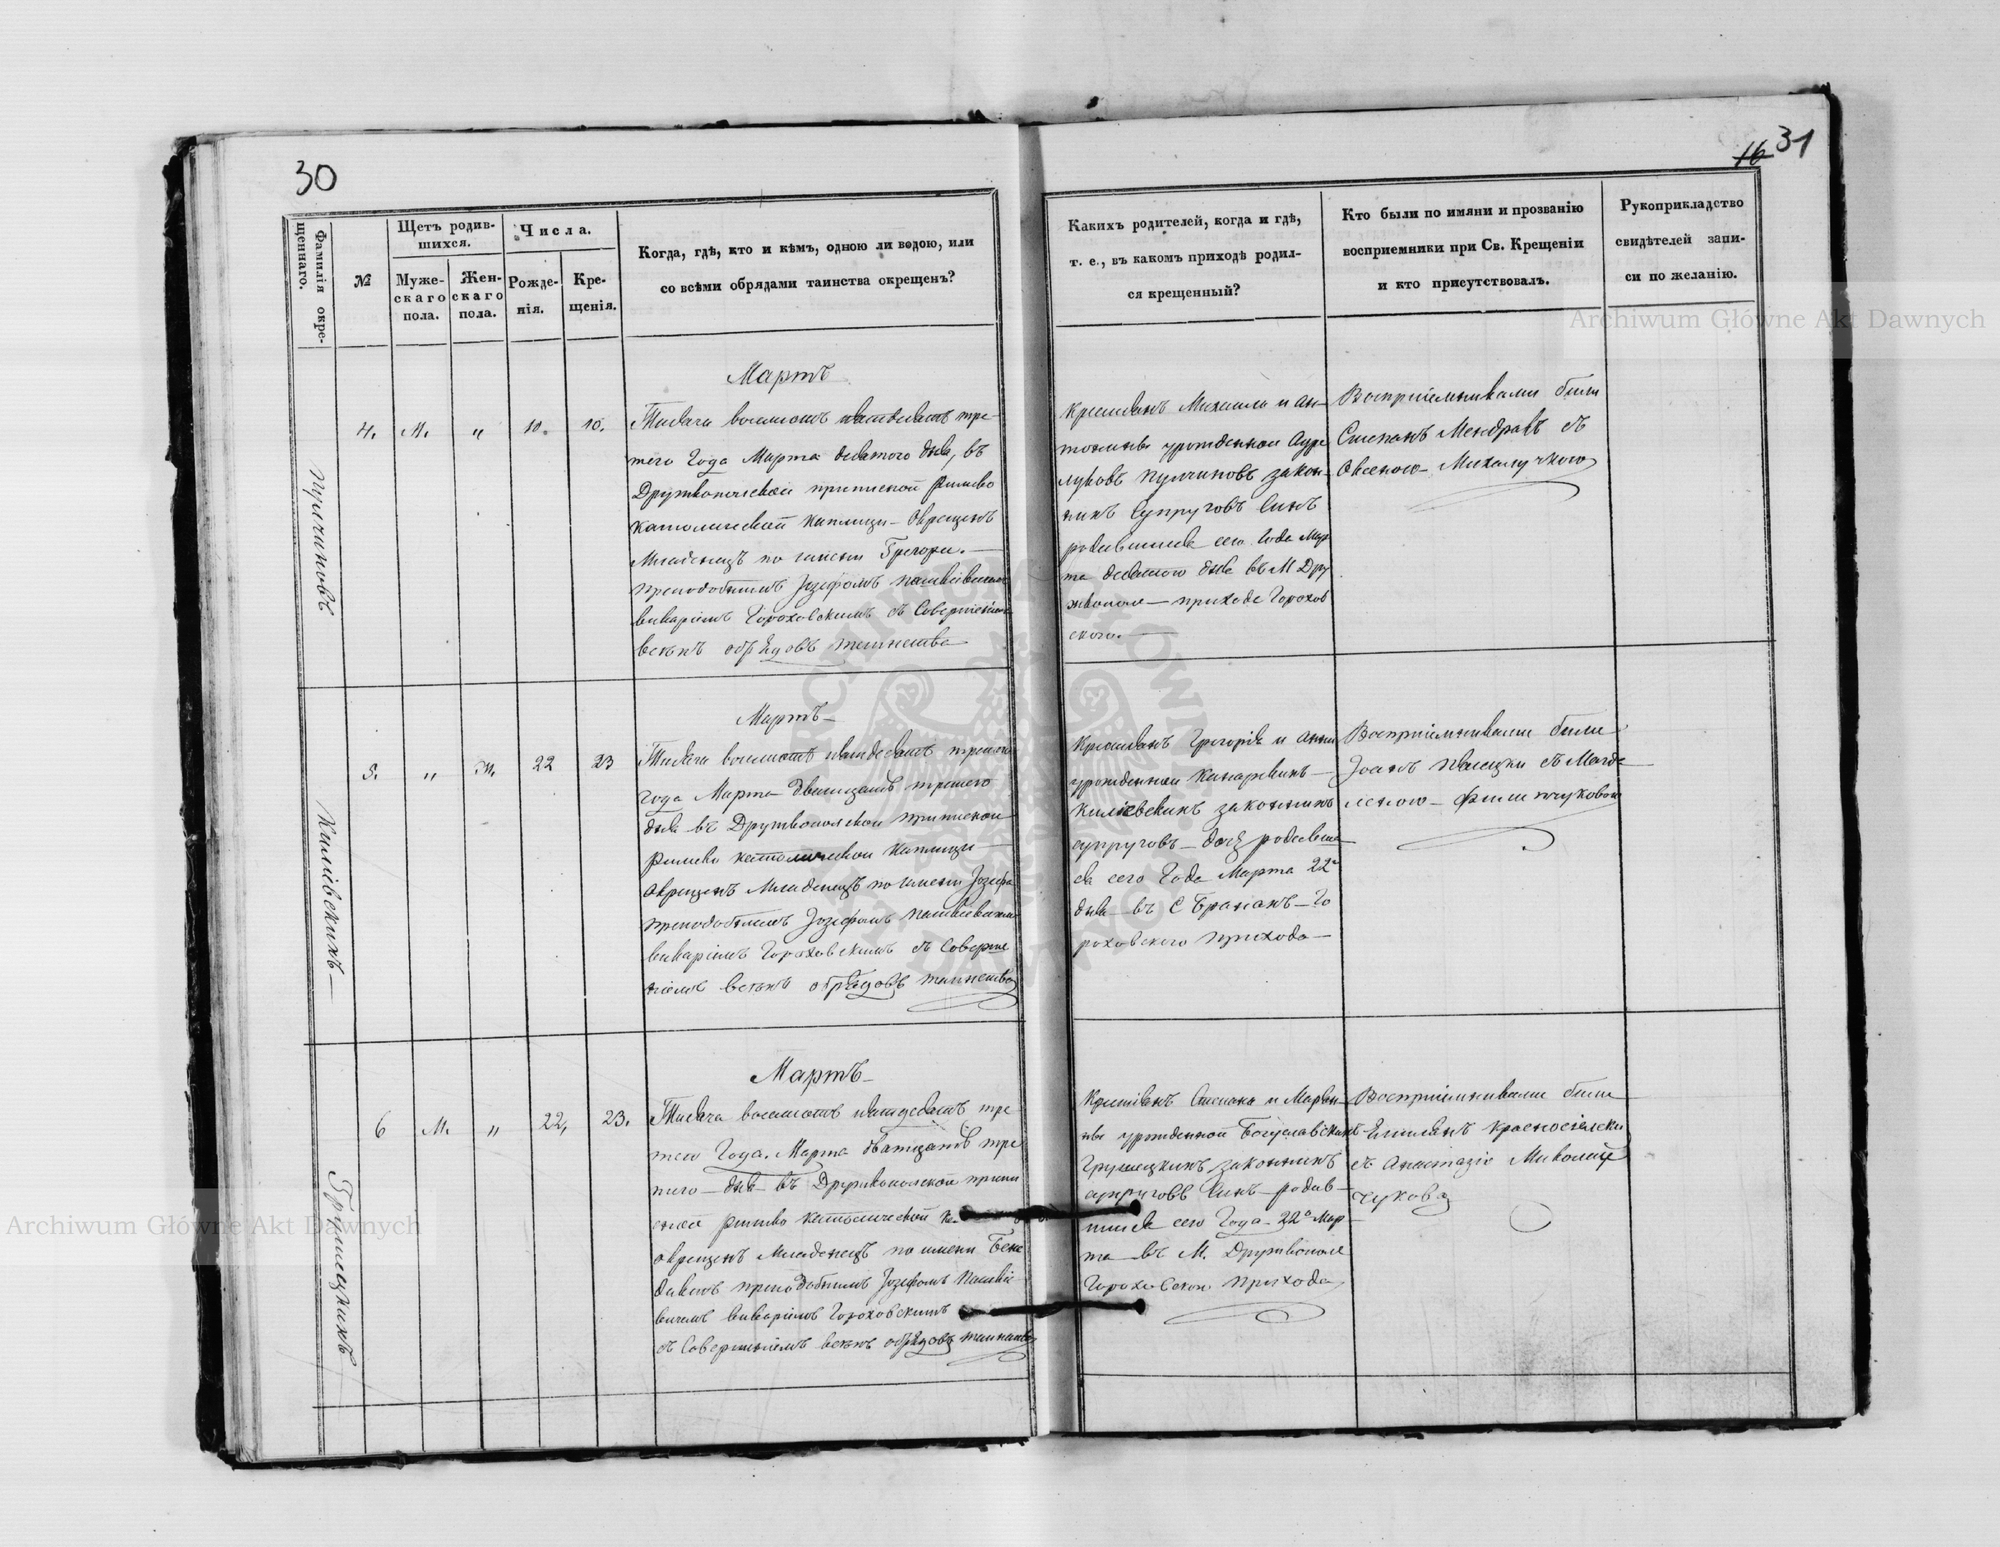 30
16 31
Фамилія окре-
щеннаго.
№
Щетъ родив-
шихся.
Муже-
скаго
пола.
Жен-
скаго
пола.
Числа.
Рожде-
нія.
Кре-
щенія.
Когда, гдѣ, кто и кѣмъ, одною ли водою, или
со всѣми обрядами таинства окрещенъ?
Какихъ родителей, когда и гдѣ,
т. е., въ какомъ приходѣ родил-
ся крещенный?
Кто были по имяни и прозванію
воспріемники при Св. Крещеніи
и кто присутствовалъ.
Рукоприкладство
свидѣтелей запи-
си по желанію.
4. М. „ 10. 10.
Мартъ
Тисяча восемсотъ пятдесятъ тре-
того Года Марта десятого дня, въ
Дружкопольской приписной Римско
католической каплицы – Окрещенъ
Младенецъ по имени Грегори. —
преподобнымъ Іозефомъ
викаріемъ Гороховскимъ съ
всѣхъ обрядовъ таинства
Крестьянъ Михаила и Ан-
урожденной
закон-
нихъ Супруговъ Синъ
родившійся сего Года Мар
та десятого дня въ М Дру
жкополе — прихода Горохов
ского. —
Воспріемниками были
Степанъ съ
5. „ Ж. 22 23
Мартъ —
Тисяча восемсотъ пятдесятъ третого
года Марта двадцать третого
дня въ Дружкопольской приписной
Римско католической каплицы —
Окрещенъ Младенецъ по имени Іозефа
преподобнымъ Іозефомъ
викаріемъ Гороховскимъ съ Соверше
ніемъ всѣхъ обрядовъ таинства
Крестьянъ Грегорія и Анны
урожденной
законнихъ
супруговъ — дочь родивша
ся сего Года Марта 22
дня — въ С Бранахъ — Го
роховского прихода —
Воспріемниками были
Іоанъ съ Магда
леною —
6 М. „ 22, 23.
Мартъ —
Тисяча восемсотъ пятдесятъ тре
того Года. Марта двадцать тре
того — дня — въ Дружкопольской припи
сной римско католической
окрещенъ Младенецъ по имени Бене
диктъ преподобнымъ Іозефомъ
викаріемъ Гороховскимъ
съ Совершеніемъ всѣхъ обрядовъ таинства
Крестьянъ Степана и Маріан-
ны урожденной
законнихъ
супруговъ Синъ — родив-
шійся сего Года – 22 Мар
та — въ М. Дружкополе
Гороховского прихода
Воспріемниками были
съ Анастазіо
Archiwum Główne Akt Dawnych
Archiwum Główne Akt Dawnych